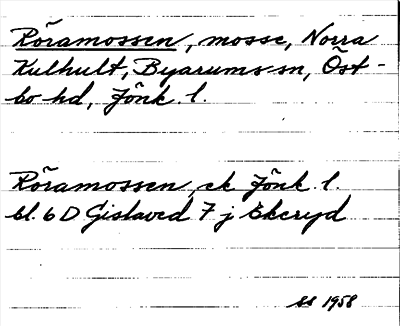 Röramossen, mosse, Norra
Kulhult, Byarums sn, Öst-
bo hd, Jönk. l.
Röramossen, ek Jönk. l.
bl. 6 D Gislaved 7 j Ekeryd
SS 1958